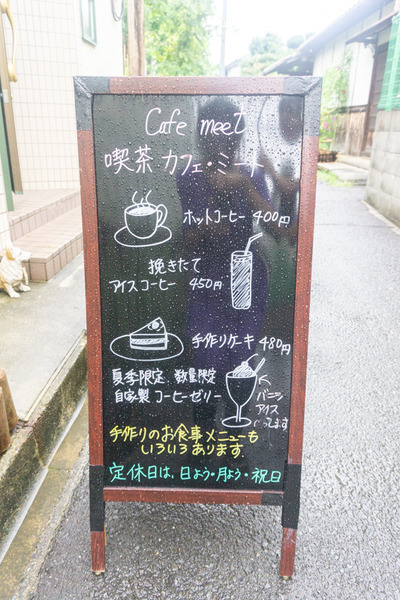 Cafe meet
喫茶 カフェ・ミート
ホットコーヒー 400円
挽きたて
アイスコーヒー 450円
手作りケーキ 480円
夏季限定 数量限定
自家製 コーヒーゼリー
バニラ
アイス
のってます
手作りのお食事メニューも
いろいろあります.
定休日は、日よう・月よう・祝日